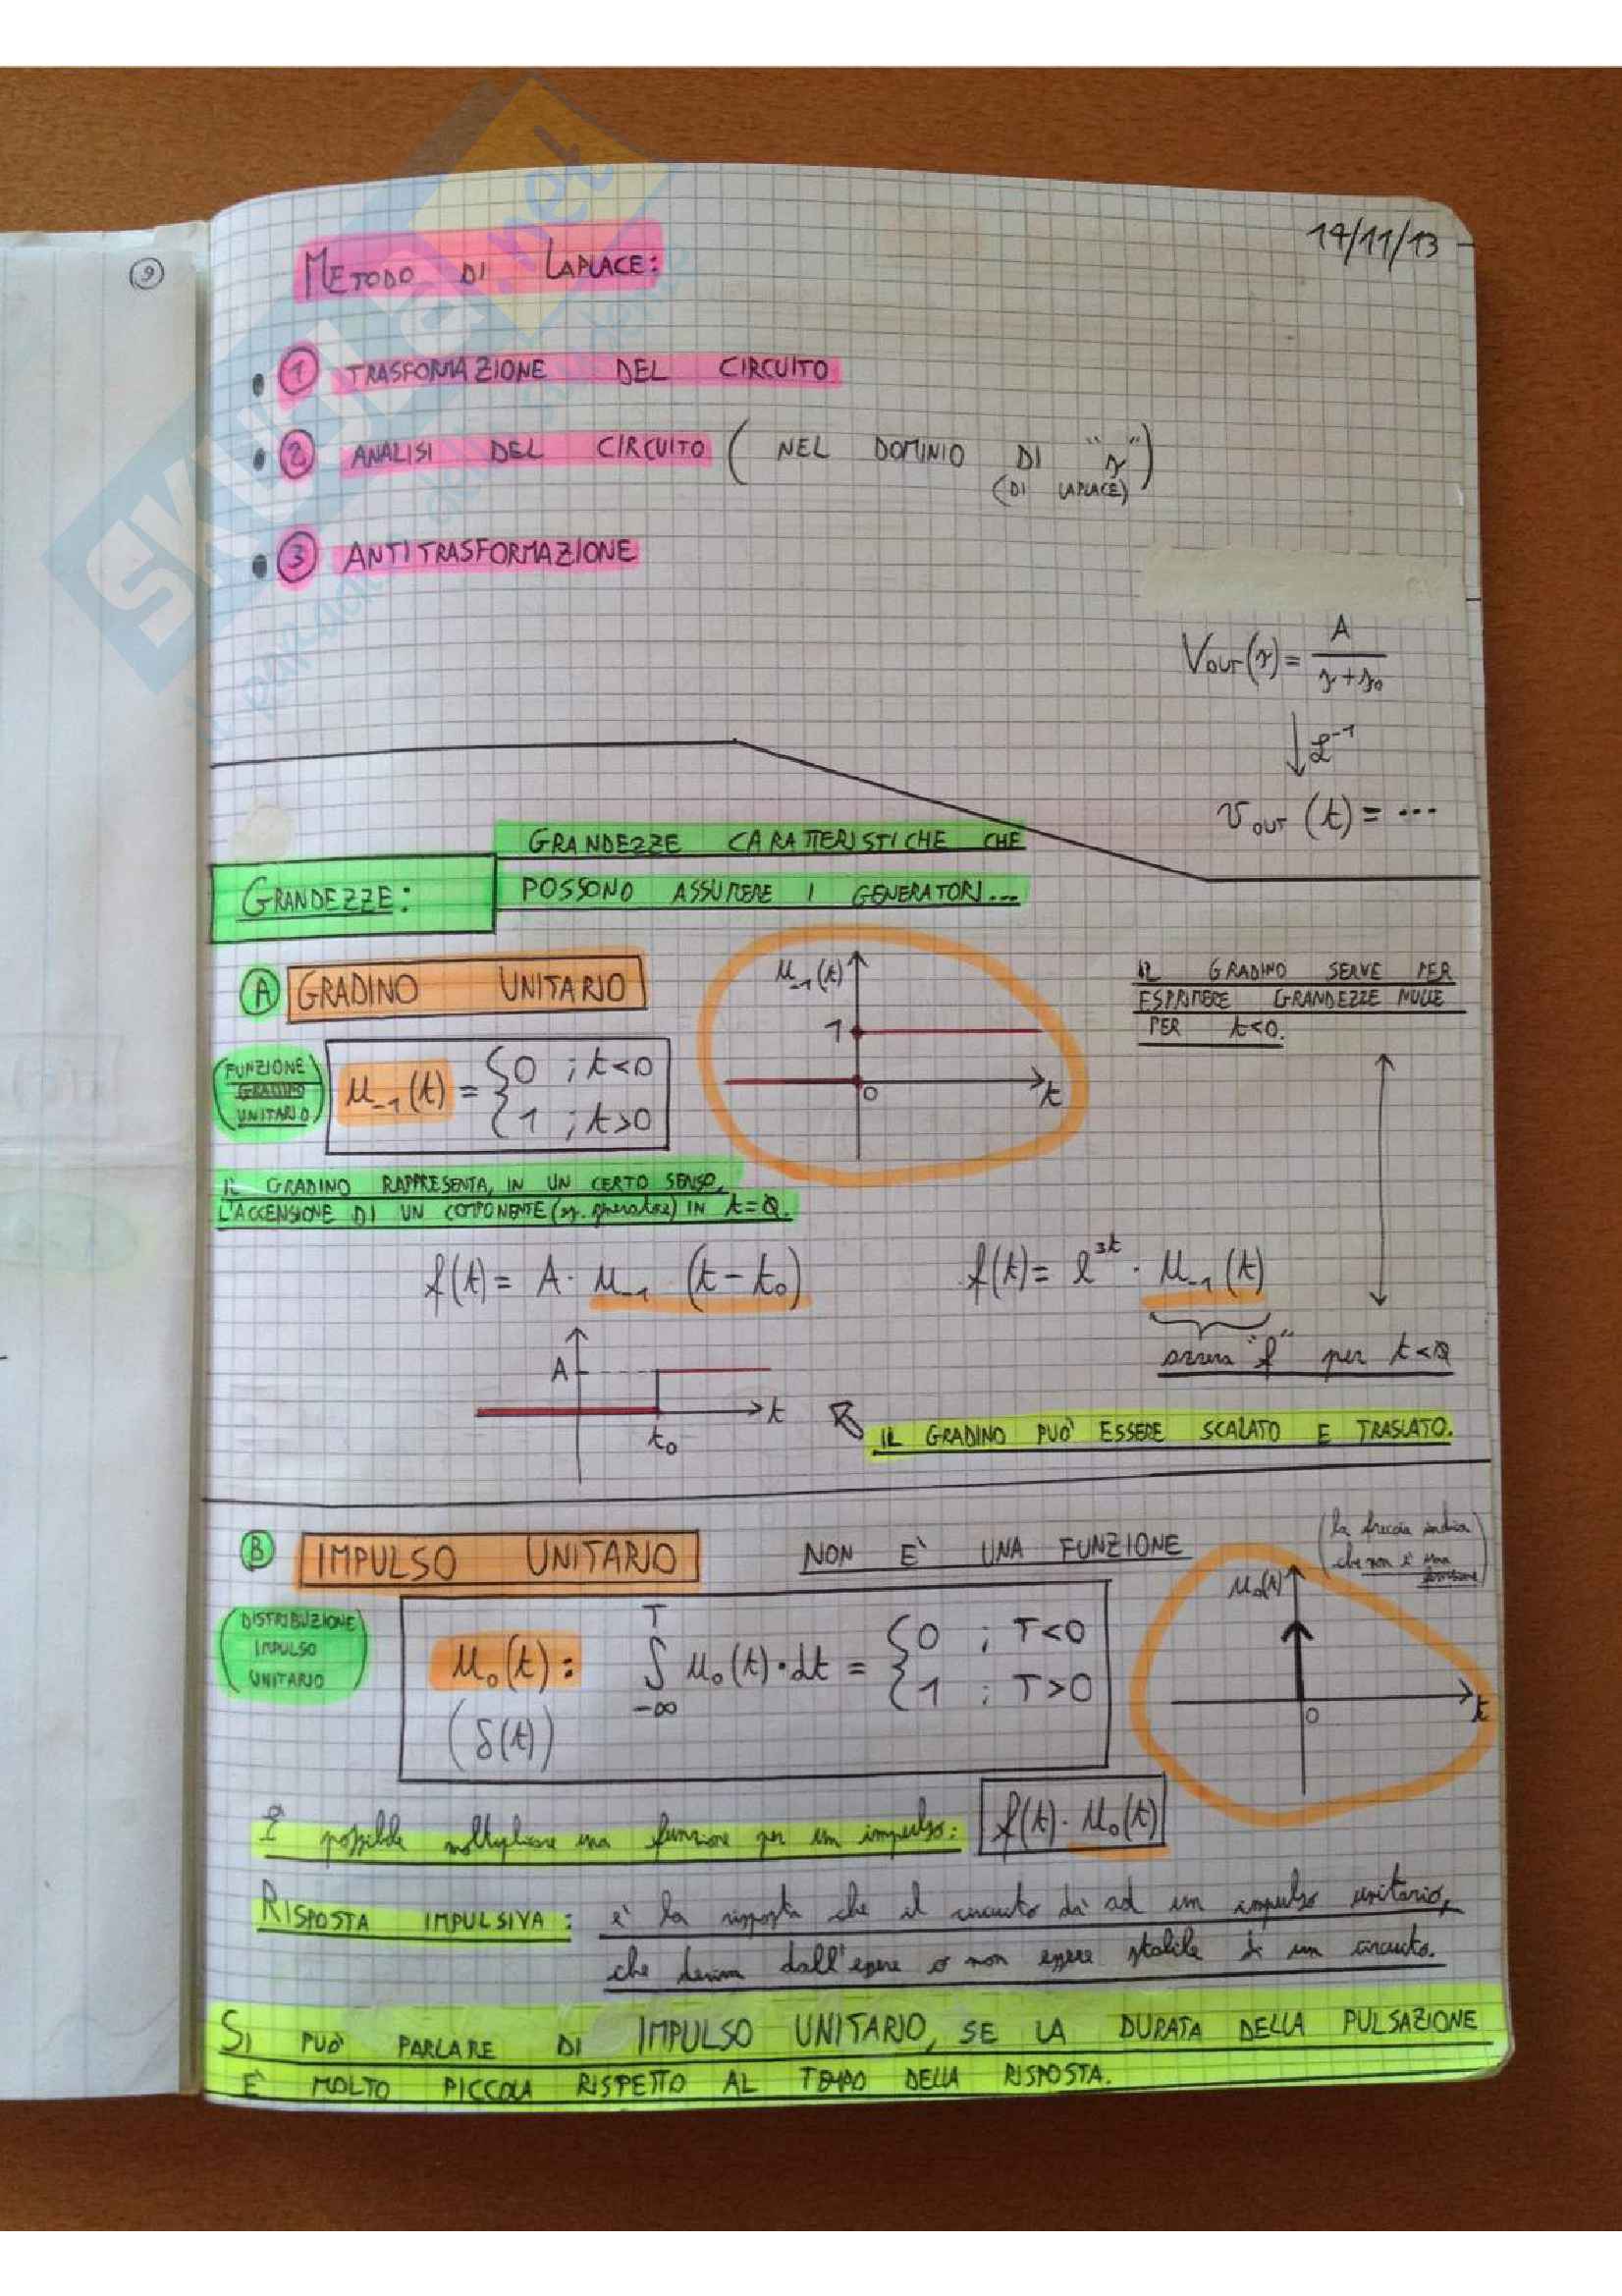 9
14/11/13
METODO DI LAPLACE:
① TRASFORMAZIONE DEL CIRCUITO
② ANALISI DEL CIRCUITO ( NEL DOMINIO DI "s")
(DI LAPLACE)
③ ANTITRASFORMAZIONE
Vout(s) = A / (s+s₀)
↓ ℒ⁻¹
vout (t) = ...
GRANDEZZE:
GRANDEZZE CARATTERISTICHE CHE
POSSONO ASSUMERE I GENERATORI...
Ⓐ GRADINO UNITARIO
(FUNZIONE
GRADINO
UNITARIO)
μ₋₁(t) = { 0 ; t<0
1 ; t>0
μ₋₁(t)
1
0
t
IL GRADINO SERVE PER
ESPRIMERE GRANDEZZE NULLE
PER t<0.
IL GRADINO RAPPRESENTA, IN UN CERTO SENSO,
L'ACCENSIONE DI UN COMPONENTE (es. generatore) IN t=0.
f(t) = A · μ₋₁ (t-t₀)
f(t) = e³ᵗ · μ₋₁(t)
"f" per t<0
A
t
t₀
IL GRADINO PUÒ ESSERE SCALATO E TRASLATO.
Ⓑ IMPULSO UNITARIO
NON È UNA FUNZIONE
(la freccia indica
che non è una
funzione)
(DISTRIBUZIONE
IMPULSO
UNITARIO)
μ₀(t): ∫_{-∞}^{T} μ₀(t)·dt = { 0 ; T<0
1 ; T>0
(δ(t))
μ₀(t)
0
t
È possibile moltiplicare una funzione per un impulso: f(t)·μ₀(t)
RISPOSTA IMPULSIVA: è la risposta che il circuito dà ad un impulso unitario,
che deriva dall'essere o non essere stabile di un circuito.
SI PUÒ PARLARE DI IMPULSO UNITARIO, SE LA DURATA DELLA PULSAZIONE
È MOLTO PICCOLA RISPETTO AL TEMPO DELLA RISPOSTA.
SKUOLA.net